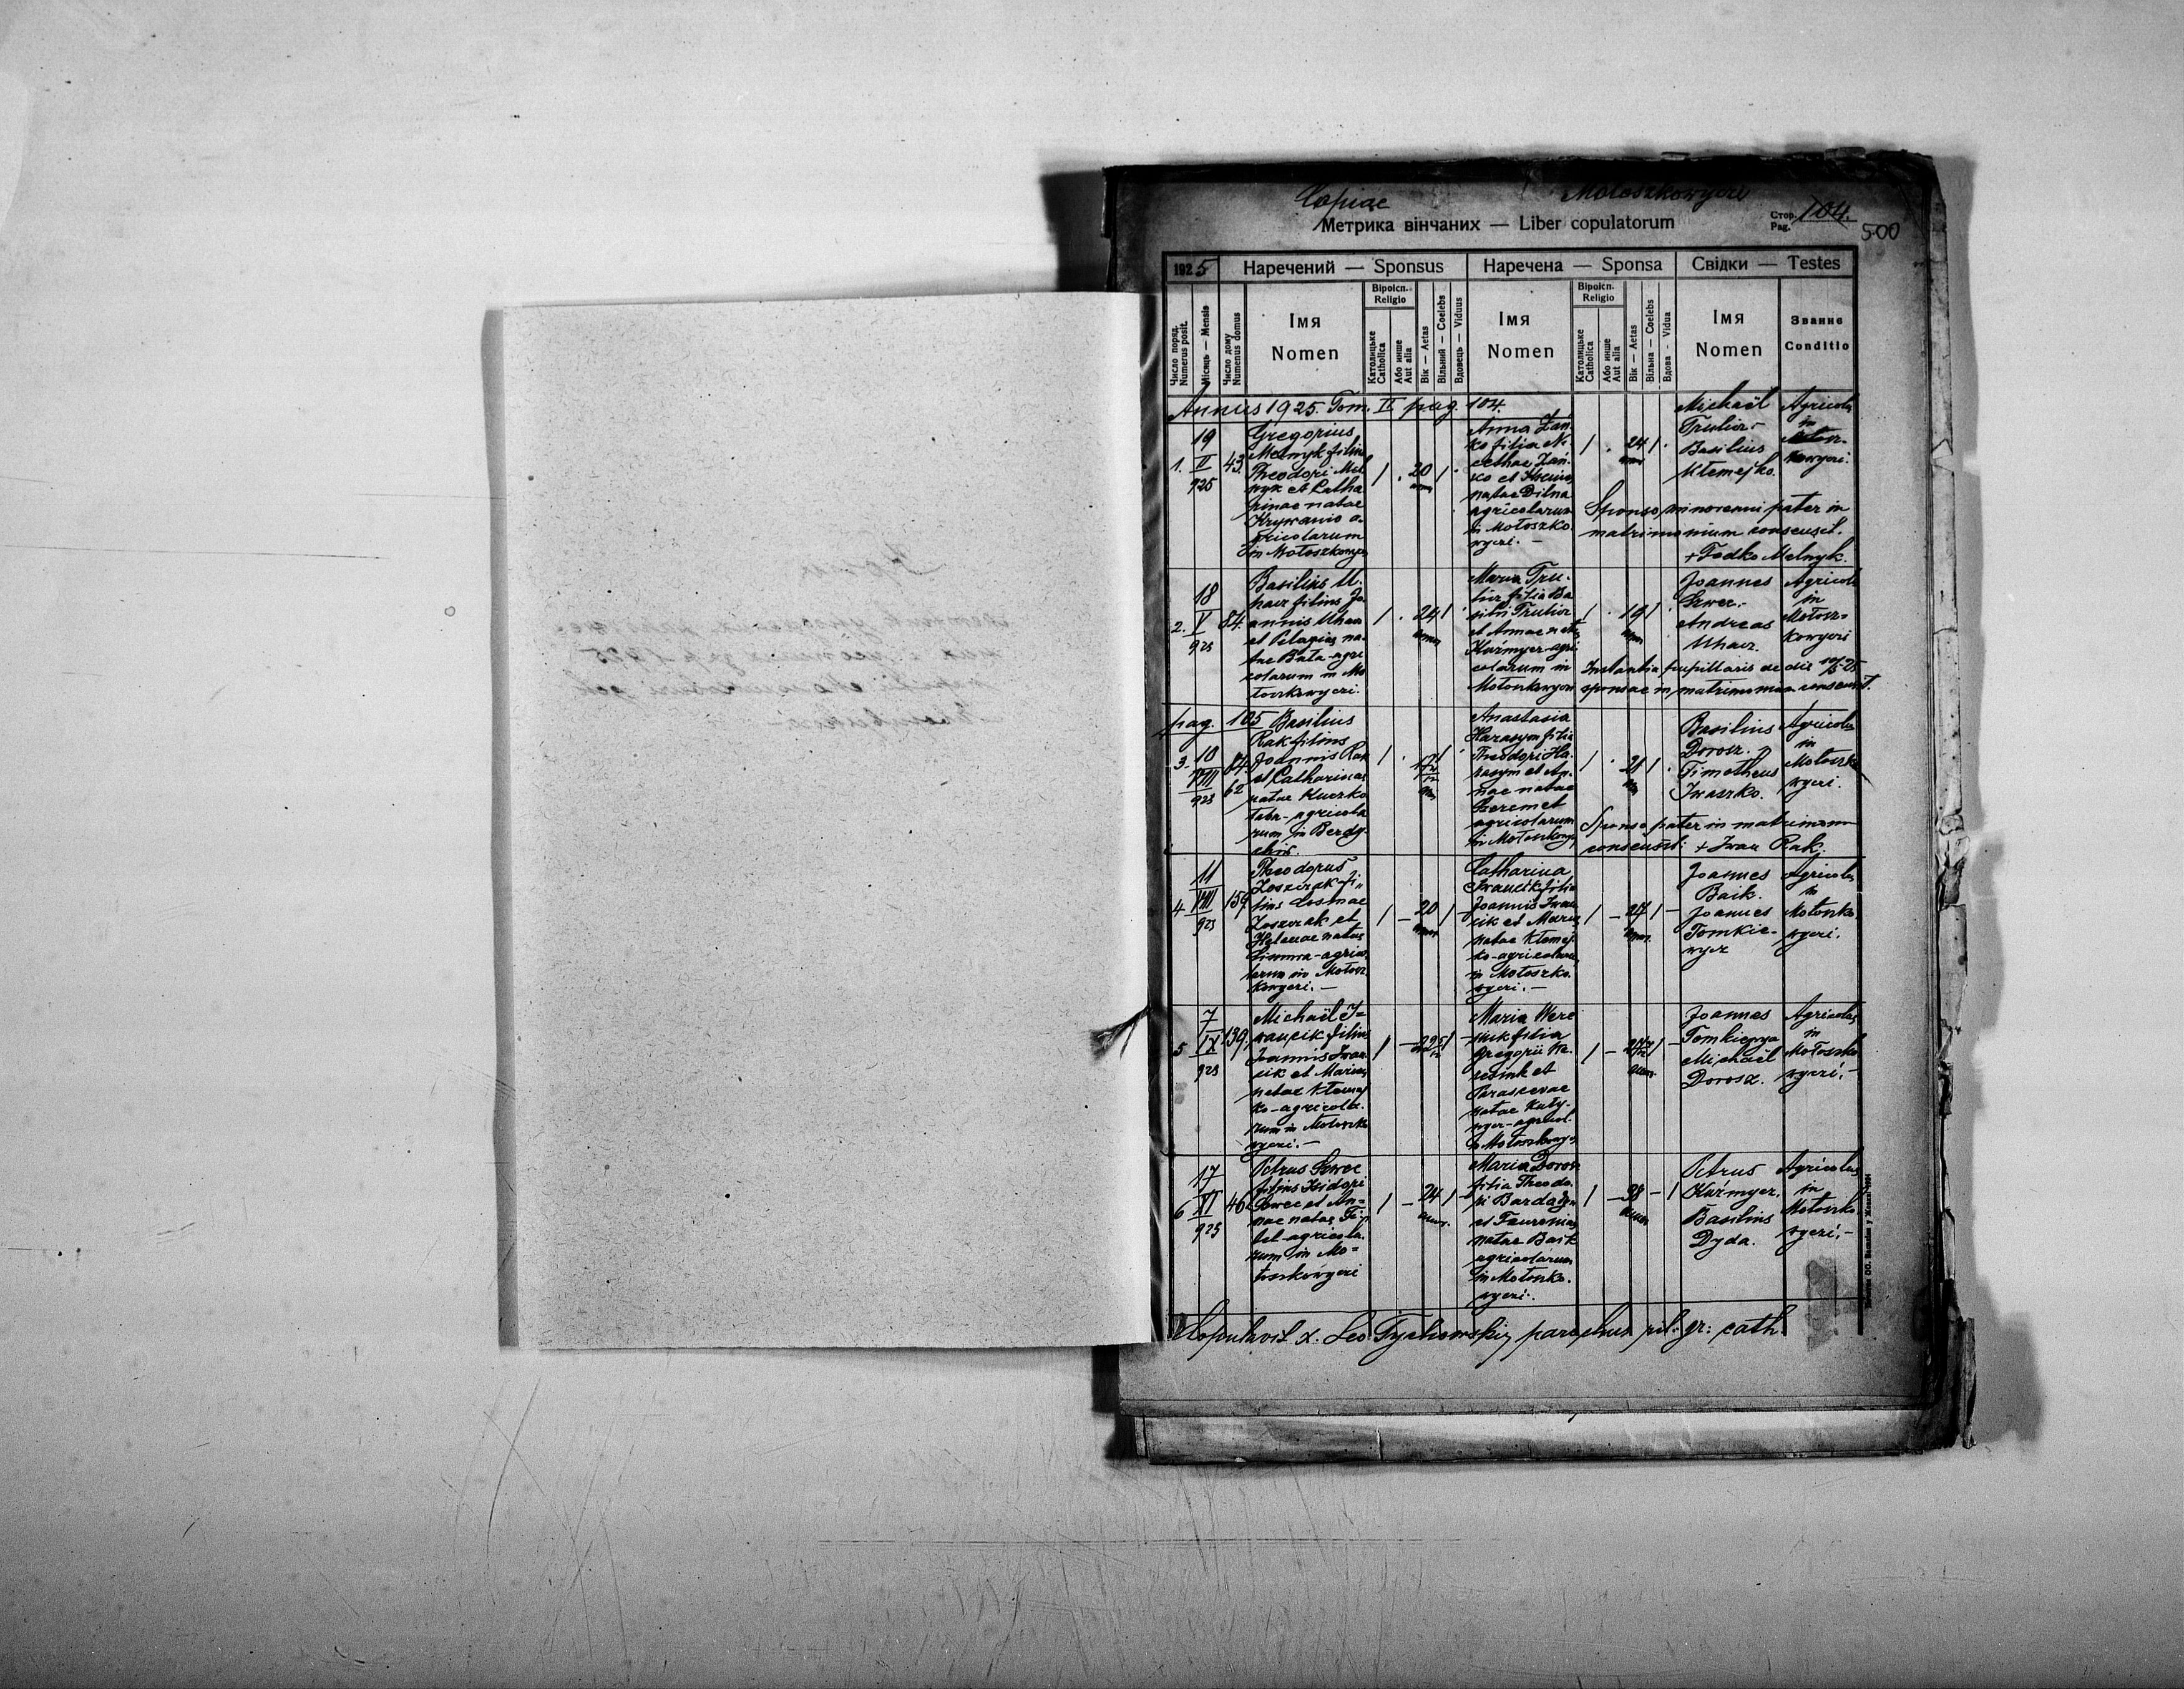 Copiae
Mołoszkowyczi
Метрика вінчаних — Liber copulatorum
Стор. Pag. 104.
500
1925
Наречений — Sponsus
Наречена — Sponsa
Свідки — Testes
Число поряд. Numerus posit.
Місяць — Mensis
Число дому Numerus domus
Імя Nomen
Віроісп. Religio
Католицьке Catholica
Або инше Aut alia
Вік — Aetas
Вільний — Coelebs
Вдовець — Viduus
Імя Nomen
Віроісп. Religio
Католицьке Catholica
Або инше Aut alia
Вік — Aetas
Вільна — Coelebs
Вдова - Vidua
Імя Nomen
Званнє Conditio
Annus 1925. Tom. II pag. 104.
1.
19
II
925
43
Gregorius
Melnyk filius
Theodori Mel
nyk et Catha
rinae natae
Krywanio a-
gricolarum
in Mołoszkowycz
20
Anna
filia
natae
agricolarum
in Mołoszko
wyczi. -
24
Michaël
Basilius
Kłemejko.
Agricola
in
kowyczi.
Sponso minorenni pater in
matrimonium consensit.
+ Fodko Melnyk.
2.
18
V
925
84.
Basilius U-
hacz filius Jo
annis Uhacz
et Pelagiae na-
tae Bata - agri
colarum in Mo
łoszkowyczi.
24
Maria
filia Ba
silii
et Annae natae
Kuźmycz - agri
colarum in
Mołoszkowyczi
19
Joannes
Szwec.
Andreas
Uhacz.
Agricola
in
Mołosz-
kowyczi
Instantia pupillaris de die
sponsae in matrimonium consensit.
pag. 105
3.
10
VIII
925
84
62
Basilius
Rak filius
Joannis Rak
et Catharinae
natae Kuczko
taba - agricola
rum in Berdy-
chiw.
Anastasia
Harasym filia
Theodori Ha-
rasym et An-
nae natae
Szeremet
agricolarum
in Mołoszkowycz
21
Basilius
Dorosz.
Timotheus
Iwaszko.
Agricola
in
Mołoszko
wyczi.
Sponso pater in matrimonium
consensit: + Iwan Rak.
4
11
VIII
925
159
Theodorus
Loszczak fi-
lius Cosmae
Loszczak et
Helenae natae
agrico
larum in Mołosz
kowyczi. -
20
Catharina
Iwancik filia
Joannis Iwan
cik et Mariae
natae Kłemej
ko - agricolarum
in Mołoszko
wyczi. -
24
Joannes
Baik.
Joannes
Tomkie-
wycz
Agricola
in
Mołoszko
wyczi.
5
7
IX
925
139.
Michaël I-
wancik filius
Joannis Iwan
cik et Mariae
natae Kłemej
ko - agricola-
rum in Mołoszko
wyczi. -
Maria Were
filia
Gregorii We-
et
Parascevae
natae Kuty-
wycz - agricol.
in Mołoszkowycz
Joannes
Tomkiewycz
Michaël
Dorosz.
Agricola
in
Mołoszko
wyczi. -
6
17
XI
925
46
Petrus Szwec
filius Isidori
Szwec et An-
nae natae
agricola-
rum in Mo-
łoszkowyczi
24
Maria Dorosz
filia Theodo-
ri
et
natae Baik
agricolarum
in Mołoszko-
wyczi.
38
Petrus
Kuźmycz.
Basilius
Dyda.
Agricola
in
Mołoszko
wyczi. -
Copulavit x. Leo Tychowskij parochus rit. gr: cath.